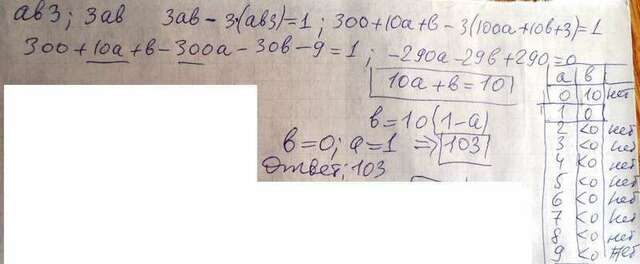 ав3; 3ав 3ав - 3·(ав3)=1; 300+10а+в - 3(100а+10в+3)=1
300+10а+в-300а-30в-9=1; -290а-29в+290=0
10а+в=10
в=10(1-а)
в=0; а=1 => 103
Ответ: 103
а в
0 10 нет
1 0
2 <0 нет
3 <0 нет
4 <0 нет
5 <0 нет
6 <0 нет
7 <0 нет
8 <0 нет
9 <0 нет